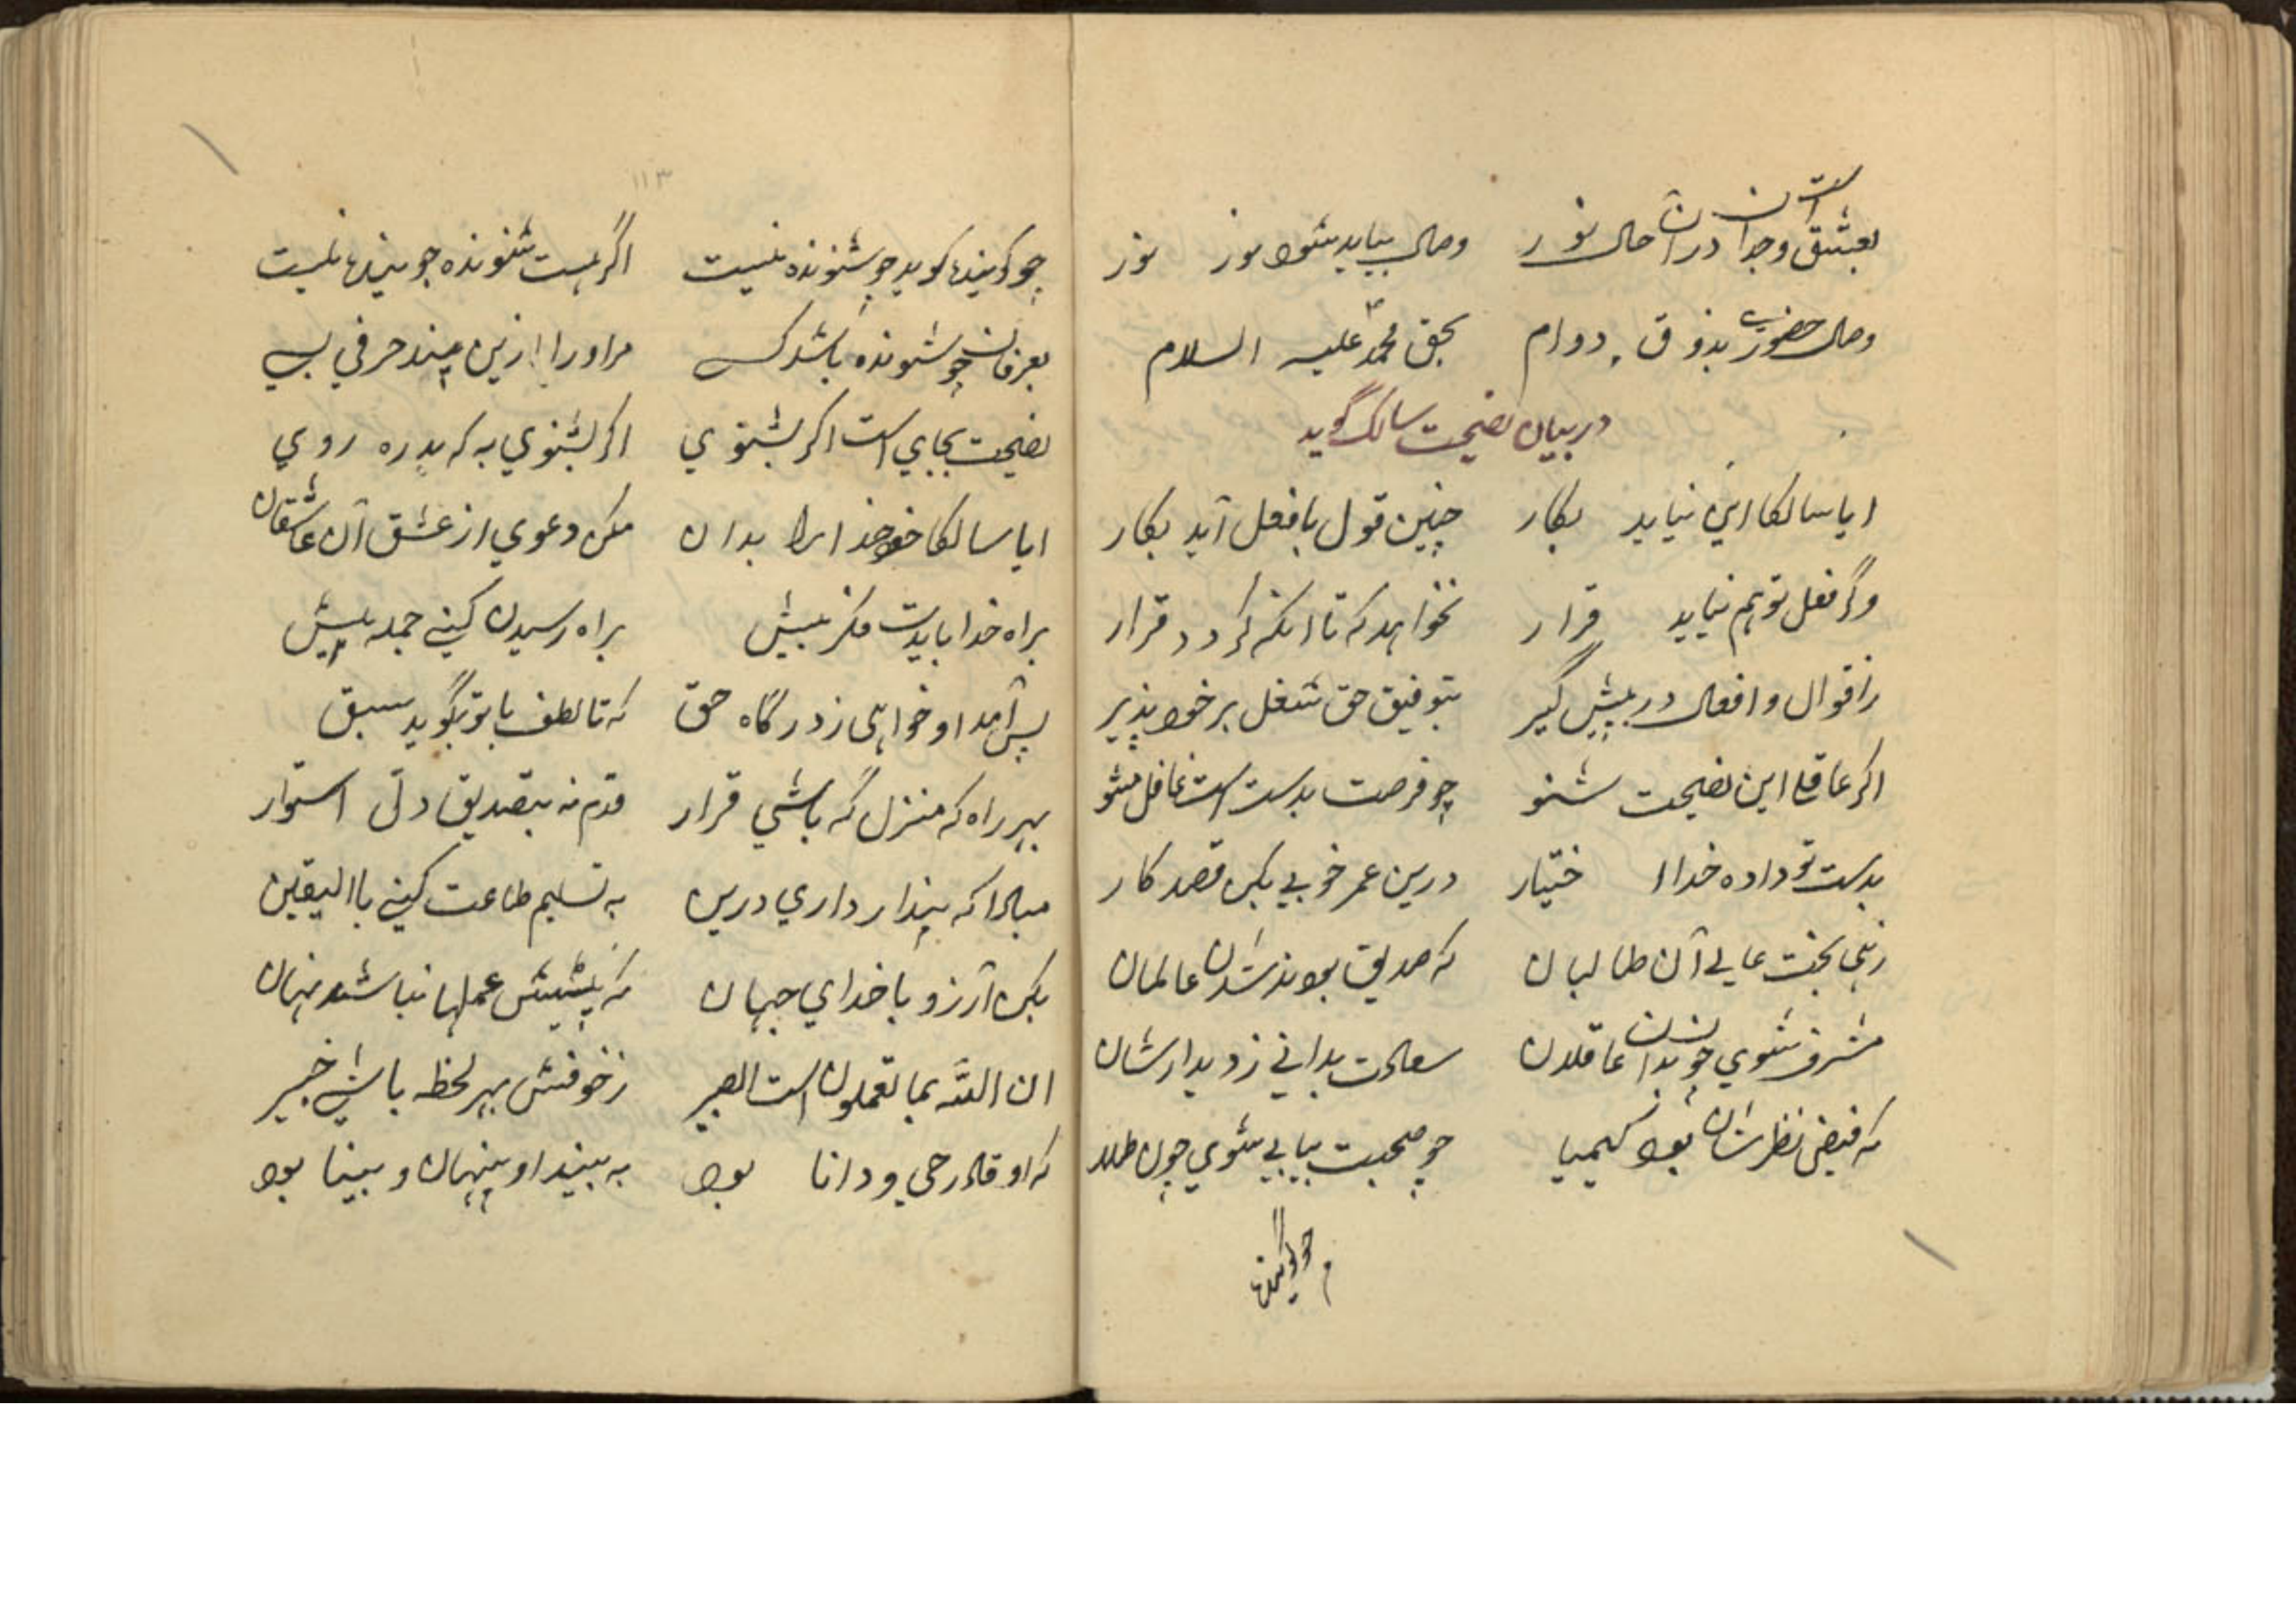 بعشق وجدانست در آن حال نور وصال بیاید شود نور نور
وصال حضوری بذوق دوام بحق محمد علیه السلام
در بیان نصیحت سالک گوید
ایا سالکا این نیاید بکار چنین قول بافعل آید بکار
وگر فعل توهم نیاید قرار نخواهد که تا آنکه گردد قرار
زاقوال و افعال در پیش گیر بتوفیق حق شغل بر خود پذیر
اگر عاقلی این نصیحت شنو چو فرصت بدست است غافل مشو
بدست تو داده خدا اختیار درین عمر خوبی بکن قصد کار
زهی بخت عالی آن طالبان که صدیق بودند شان عالمان
مشرف شوی چو بدان عاقلان سعادت بدانی ز دیدار شان
که فیض نظر شان بود کیمیا چو صحبت بیابی شوی چون طلا
چو گویندها
۱۱۳
چو گویندها گوید چو شنونده نیست اگر هست شنونده چو بیندها نیست
بعرفان چو شنونده باشد کسی مراورا ازین پند حرفی بسی
نصیحت بجای است اگر بشنوی اگر بشنوی به که بدره روی
ایا سالکا خود خدا را بدان مکن دعوی از عشق آن عاشقان
براه خدا بایدت فکر بیش براه رسیدن کنی جمله پیش
پس آمد او خواهی ز درگاه حق که تا لطف با تو بگوید سبق
بهر راه که منزل گه باشی قرار قدم نه بتصدیق دل استوار
مبادا که پندار داری درین به تسلیم طاعت کنی باالیقین
بکن آرزو با خدای جهان که پیشش عملها نباشد نهان
ان الله بما تعملون است البصیر زخوفش بهر لحظه باشی خبیر
که او قادر حی و دانا بود به بیند او پنهان و بینا بود